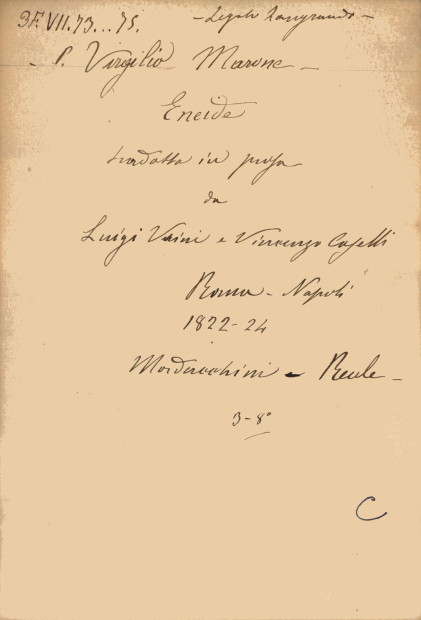 3F.VII.73...75.
- Legato Zangrando -
- P. Virgilio Marone -
Eneide
tradotta in prosa
da
Luigi Unini e Vincenzo Caselli
Roma - Napoli
1822-24
Mordacchini - Reale -
3-8°
C